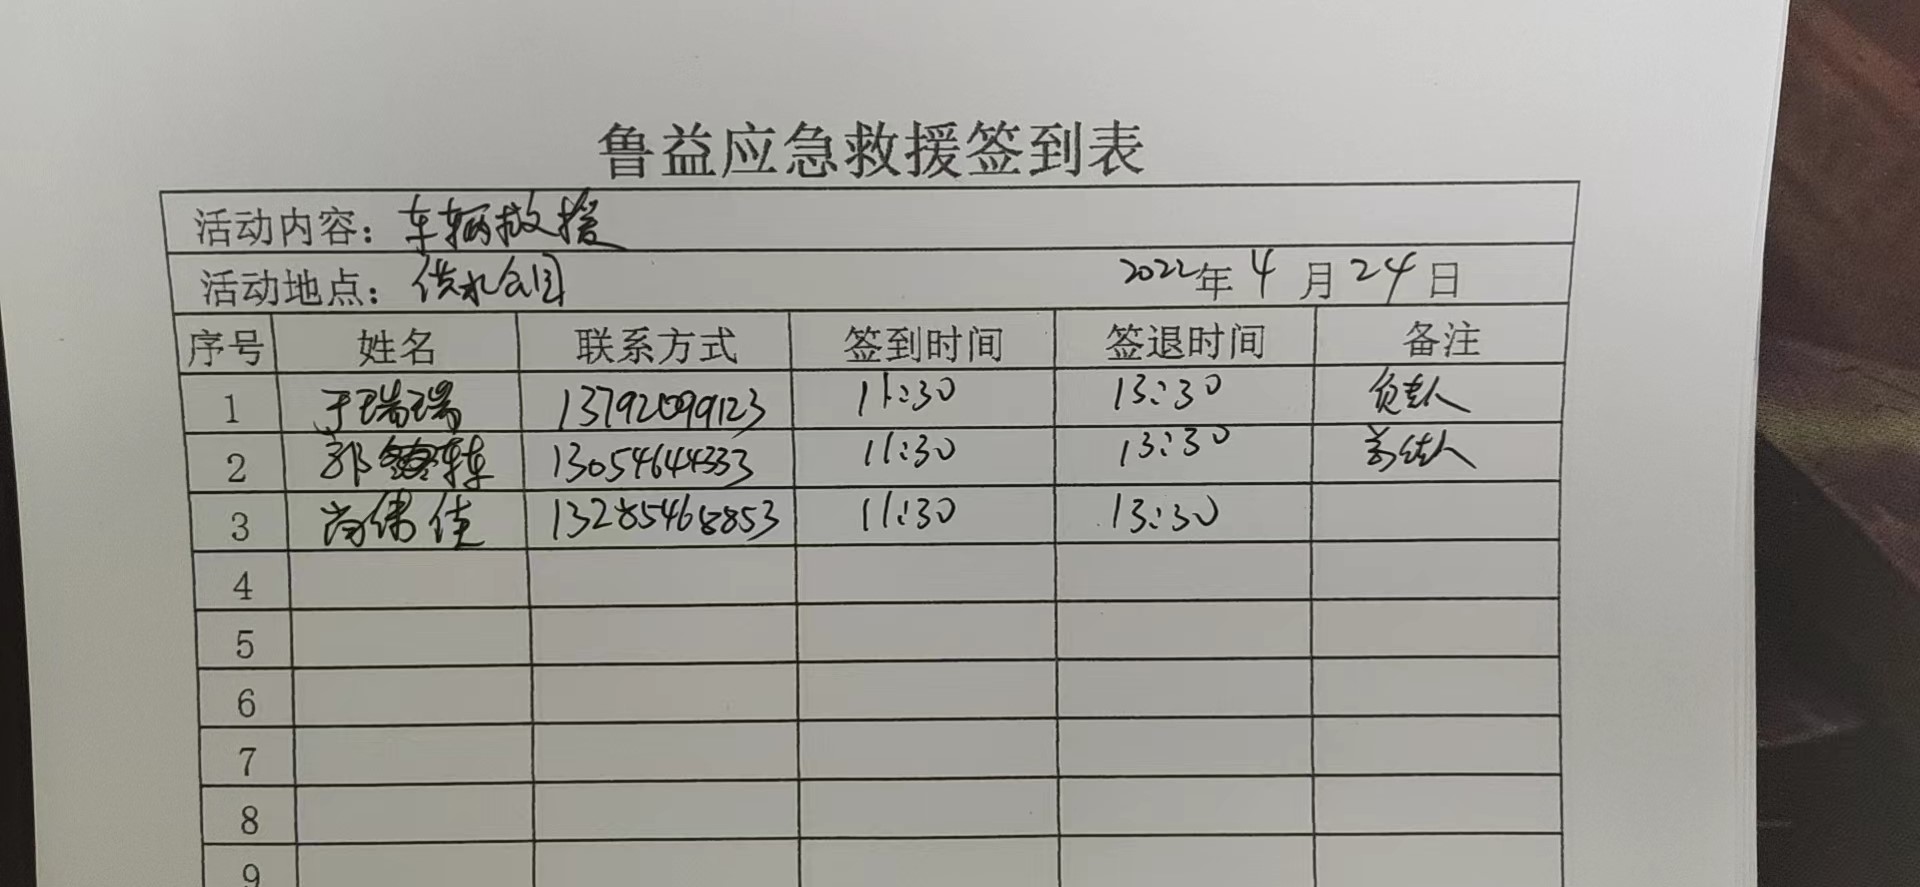 鲁益应急救援签到表
活动内容：车辆救援
活动地点：供水公司 2022年4月24日
序号 姓名 联系方式 签到时间 签退时间 备注
1 于瑞瑞 13792099123 11:30 13:30 负责人
2 郭 栋 13054644333 11:30 13:30
3 尚伟佳 13285468853 11:30 13:30
4
5
6
7
8
9